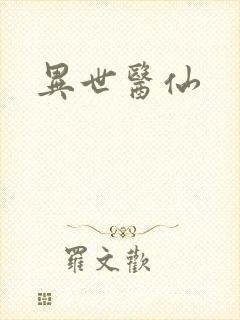 異世醫仙
羅文歡